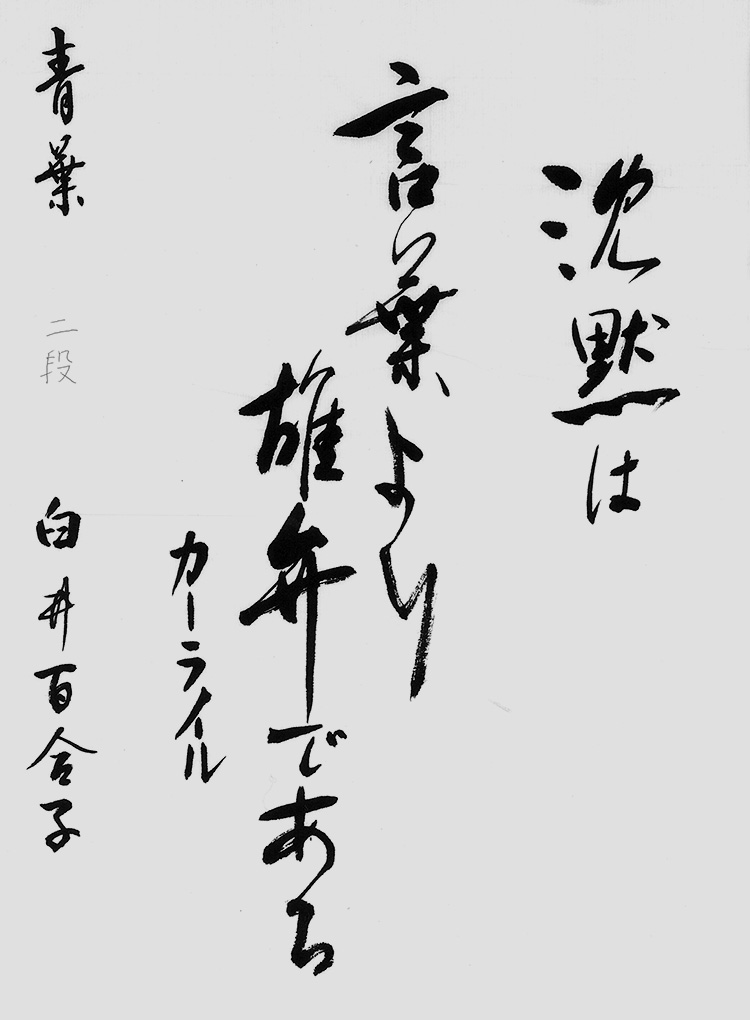 沈黙は
言葉より
雄弁である
カーライル
青葉 二段 白井百合子